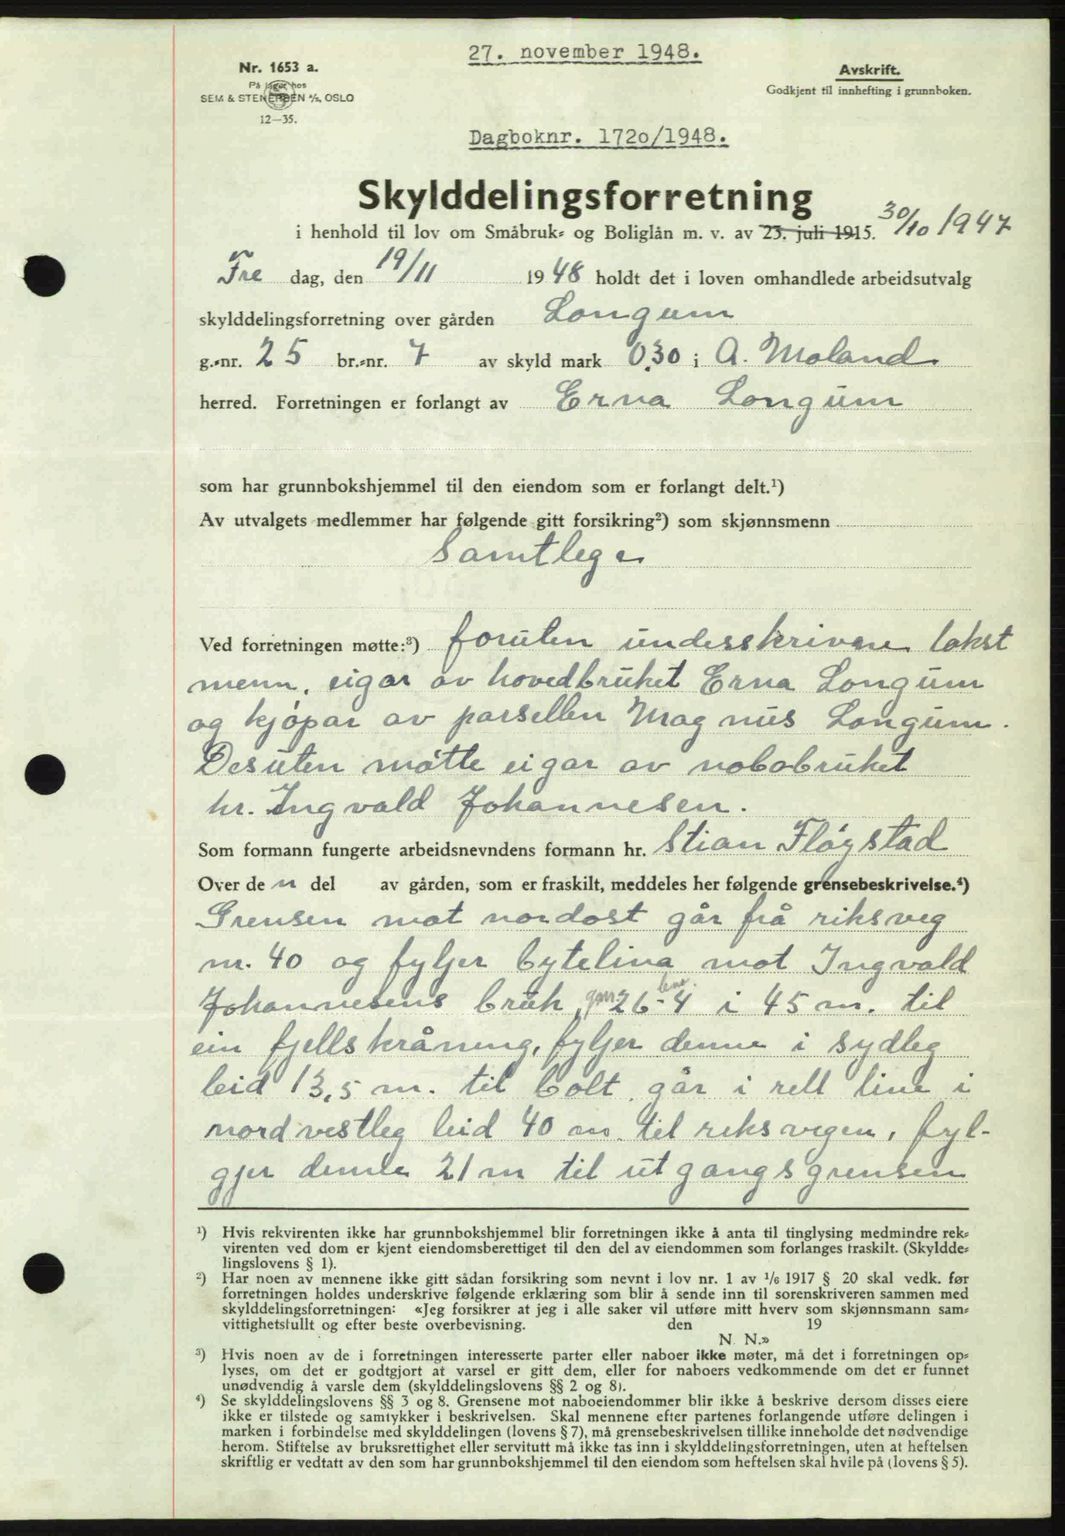 27. november 1948.
Nr. 1653 a.
På lager hos
SEM & STENERSEN A/S, OSLO
12—35.
Avskrift.
Godkjent til innhefting i grunnboken.
Dagboknr. 1720/1948.
Skylddelingsforretning
i henhold til lov om Småbruk- og Boliglån m. v. av 23. juli 1915. 30/10 1947
Fre dag, den 19/11 1948 holdt det i loven omhandlede arbeidsutvalg
skylddelingsforretning over gården Longum
g.-nr. 25 br.-nr. 7 av skyld mark 0,30 i A. Moland
herred. Forretningen er forlangt av Erna Longum
som har grunnbokshjemmel til den eiendom som er forlangt delt.¹)
Av utvalgets medlemmer har følgende gitt forsikring²) som skjønnsmenn
Samtlege
Ved forretningen møtte:³) foruten underskrivne lakst
menn, eigar av hovedbruket Erna Longum
og kjøpar av parsellen Magnus Longum.
Desuten møtte eigar av nabobruket
hr. Ingvald Johannesen.
Som formann fungerte arbeidsnevndens formann hr. Stian Fløystad
Over den del av gården, som er fraskilt, meddeles her følgende grensebeskrivelse.⁴)
Grensen mot nordost går frå riksveg
nr. 40 og fyljer bytelina mot Ingvald
Johannesens bruk, gnr. 26-4 i line 45 m. til
ein fjellskråning, fyljer denne i sydleg
leid 13,5 m. til bolt, går i rell line i
nordvestleg leid 40 m. til reksvegen, fyl-
gjer denne 21 m til utgangsgrensen
¹) Hvis rekvirenten ikke har grunnbokshjemmel blir forretningen ikke å anta til tinglysing medmindre rek-
virenten ved dom er kjent eiendomsberettiget til den del av eiendommen som forlanges fraskilt. (Skyldde-
lingslovens § 1).
²) Har noen av mennene ikke gitt sådan forsikring som nevnt i lov nr. 1 av 1/6 1917 § 20 skal vedk. før
forretningen holdes underskrive følgende erklæring som blir å sende inn til sorenskriveren sammen med
skylddelingsforretningen: «Jeg forsikrer at jeg i alle saker vil utføre mitt hverv som skjønnsmann sam-
vittighetsfullt og efter beste overbevisning. den 19
N. N.»
³) Hvis noen av de i forretningen interesserte parter eller naboer ikke møter, må det i forretningen op-
lyses, om det er godtgjort at varsel er gitt dem, eller for naboers vedkommende om det er funnet
unødvendig å varsle dem (skylddelingslovens §§ 2 og 8).
⁴) Se skylddelingslovens §§ 3 og 8. Grensene mot naboeiendommer blir ikke å beskrive dersom disses eiere
ikke er tilstede og samtykker i beskrivelsen. Skal mennene efter partenes forlangende utføre delingen i
marken i forbindelse med skylddelingen (lovens § 7), må grensebeskrivelsen tillike inneholde det nødvendige
herom. Stiftelse av bruksrettighet eller servitutt må ikke tas inn i skylddelingsforretningen, uten at heftelsen
skriftlig er vedtatt av den som har grunnbokshjemmel til den eiendom som heftelsen skal hvile på (lovens § 5).